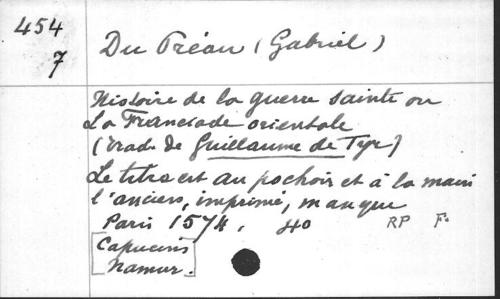 454
7
Du Préau (Gabriel)
Histoire de la guerre sainte ou
La Franciade orientale
(trad. de Guillaume de Tyr)
Le titre est au pochoir et à la main
l'anciens, imprimé, manque
Paris 1574. 4o RP F.
[Capucins
Namur.]